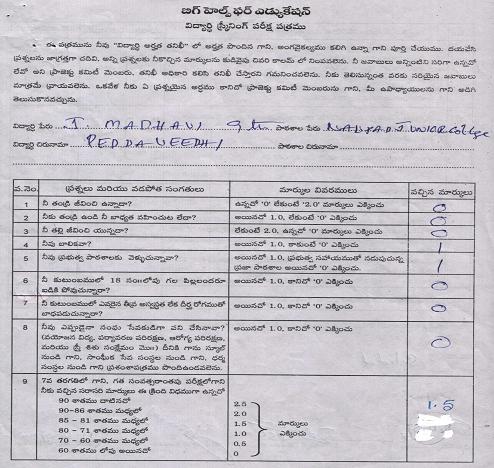 బిగ్ హెల్ప్ ఫర్ ఎడ్యుకేషన్
విద్యార్థి స్క్రీనింగ్ పరీక్ష పత్రము
ఈ పత్రమును నీవు "విద్యార్థి అర్హత తనిఖీ" లో అర్హత పొందిన గాని, అంగవైకల్యము కలిగి ఉన్నా గాని పూర్తి చేయుము. దయచేసి
ప్రశ్నలను జాగ్రత్తగా చదివి, అన్ని ప్రశ్నలకు నీకొచ్చిన మార్కులను కుడివైపు చివరి కాలమ్ లో నింపవలెను. నీ జవాబులు అన్నింటిని సరిగా ఉన్నదో
లేవో అని ప్రాజెక్టు కమిటీ మెంబరు, తనిఖీ అధికారి కలిసి తనిఖీ చేస్తారని గమనించవలెను. నీకు తెలిసినంతవరకు సరియైన జవాబులు
మాత్రమే వ్రాయవలెను. ఒకవేళ నీకు ఏ ప్రశ్నయైన అర్థము కానిచో ప్రాజెక్టు కమిటీ మెంబరును గాని, మీ ఉపాధ్యాయులను గాని అడిగి
తెలుసుకొనవచ్చును.
విద్యార్థి పేరు J. MADHAVI 9th పాఠశాల పేరు JUNIOR College
విద్యార్థి చిరునామా PEDDAVEEDHI పాఠశాల చిరునామా
వ.నెం. ప్రశ్నలు మరియు వడపోత సంగతులు మార్కుల వివరములు వచ్చిన మార్కులు
1 నీ తండ్రి జీవించి ఉన్నాడా? ఉన్నచో '0' లేకుంటే '2.0' మార్కులు ఎక్కించు 0
2 నీకు తండ్రి ఉండి నీ బాధ్యత వహించుట లేదా? అయినచో 1.0, లేకుంటే '0' ఎక్కించు 0
3 నీ తల్లి జీవించి యున్నదా? లేకుంటే 2.0, ఉన్నచో '0' మార్కులు ఎక్కించు 0
4 నీవు బాలికవా? అయినచో 1.0, కాకుంటే '0' ఎక్కించు 1
5 నీవు ప్రభుత్వ పాఠశాలకు వెళ్ళుచున్నావా? అయినచో 1.0, ప్రభుత్వ సహాయముతో నడుపుచున్న
ప్రజా పాఠశాల అయినచో '0' ఎక్కించు. 1
6 నీ కుటుంబములో 18 సం॥లోపు గల పిల్లలందరూ
బడికి పోవుచున్నారా? అయినచో 1.0, కానిచో '0' ఎక్కించు 0
7 నీ కుటుంబములో ఎవరైన తీవ్ర అస్వస్థత లేక దీర్ఘ రోగముతో
బాధపడుచున్నారా? అయినచో 1.0, కానిచో '0' ఎక్కించు 0
8 నీవు ఎప్పుడైనా సంఘ సేవకుడిగా పని చేసినావా?
(వయోజన విద్య, పర్యావరణ పరిరక్షణ, ఆరోగ్య పరిరక్షణ,
మరియు స్త్రీ శిశు సంక్షేమం మొ॥) దీనికి గాను స్కూల్
నుండి గాని, సాంఘిక సేవ సంస్థల నుండి గాని, ధర్మ
సంస్థల నుండి గాని ప్రశంశాపత్రము పొందిఉండవలెను. అయినచో 1.0, కానిచో '0' ఎక్కించు 0
9 7వ తరగతిలో గాని, గత సంవత్సరాంతపు పరీక్షలోగాని
నీకు వచ్చిన సరాసరి మార్కులు ఈ క్రింది విధముగా ఉన్నచో
90 శాతము దాటినచో 2.5
90-86 శాతము మధ్యలో 2.0
85 - 81 శాతము మధ్యలో 1.5
80 - 71 శాతము మధ్యలో 1.0
70 - 60 శాతము మధ్యలో 0.5
60 శాతము లోపు అయినచో 0
మార్కులు
ఎక్కించు
1.5